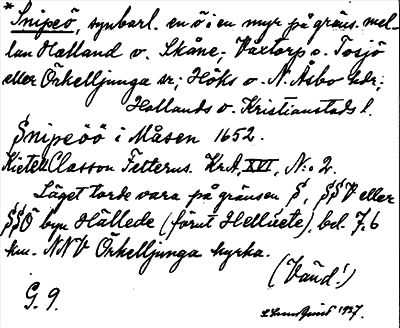 * Snipeö, synbarl. en ö i en myr på gräns. mel-
lan Halland o. Skåne; Våxtorp o. Tosjö
eller Örkelljunga sr; Höks o. N. Åsbo hdr;
Hallands o. Kristianstads l.
Snipeöö i Måsen 1652.
Kietel Classon Felterus. KrA XVI, N:o 2.
Läget torde vara på gränsen S, SSV eller
SSO byn Hällede (förut Helluete), bel. 7.6
km. NNV Örkelljunga kyrka.
(Vänd!)
G. 9.
1927.